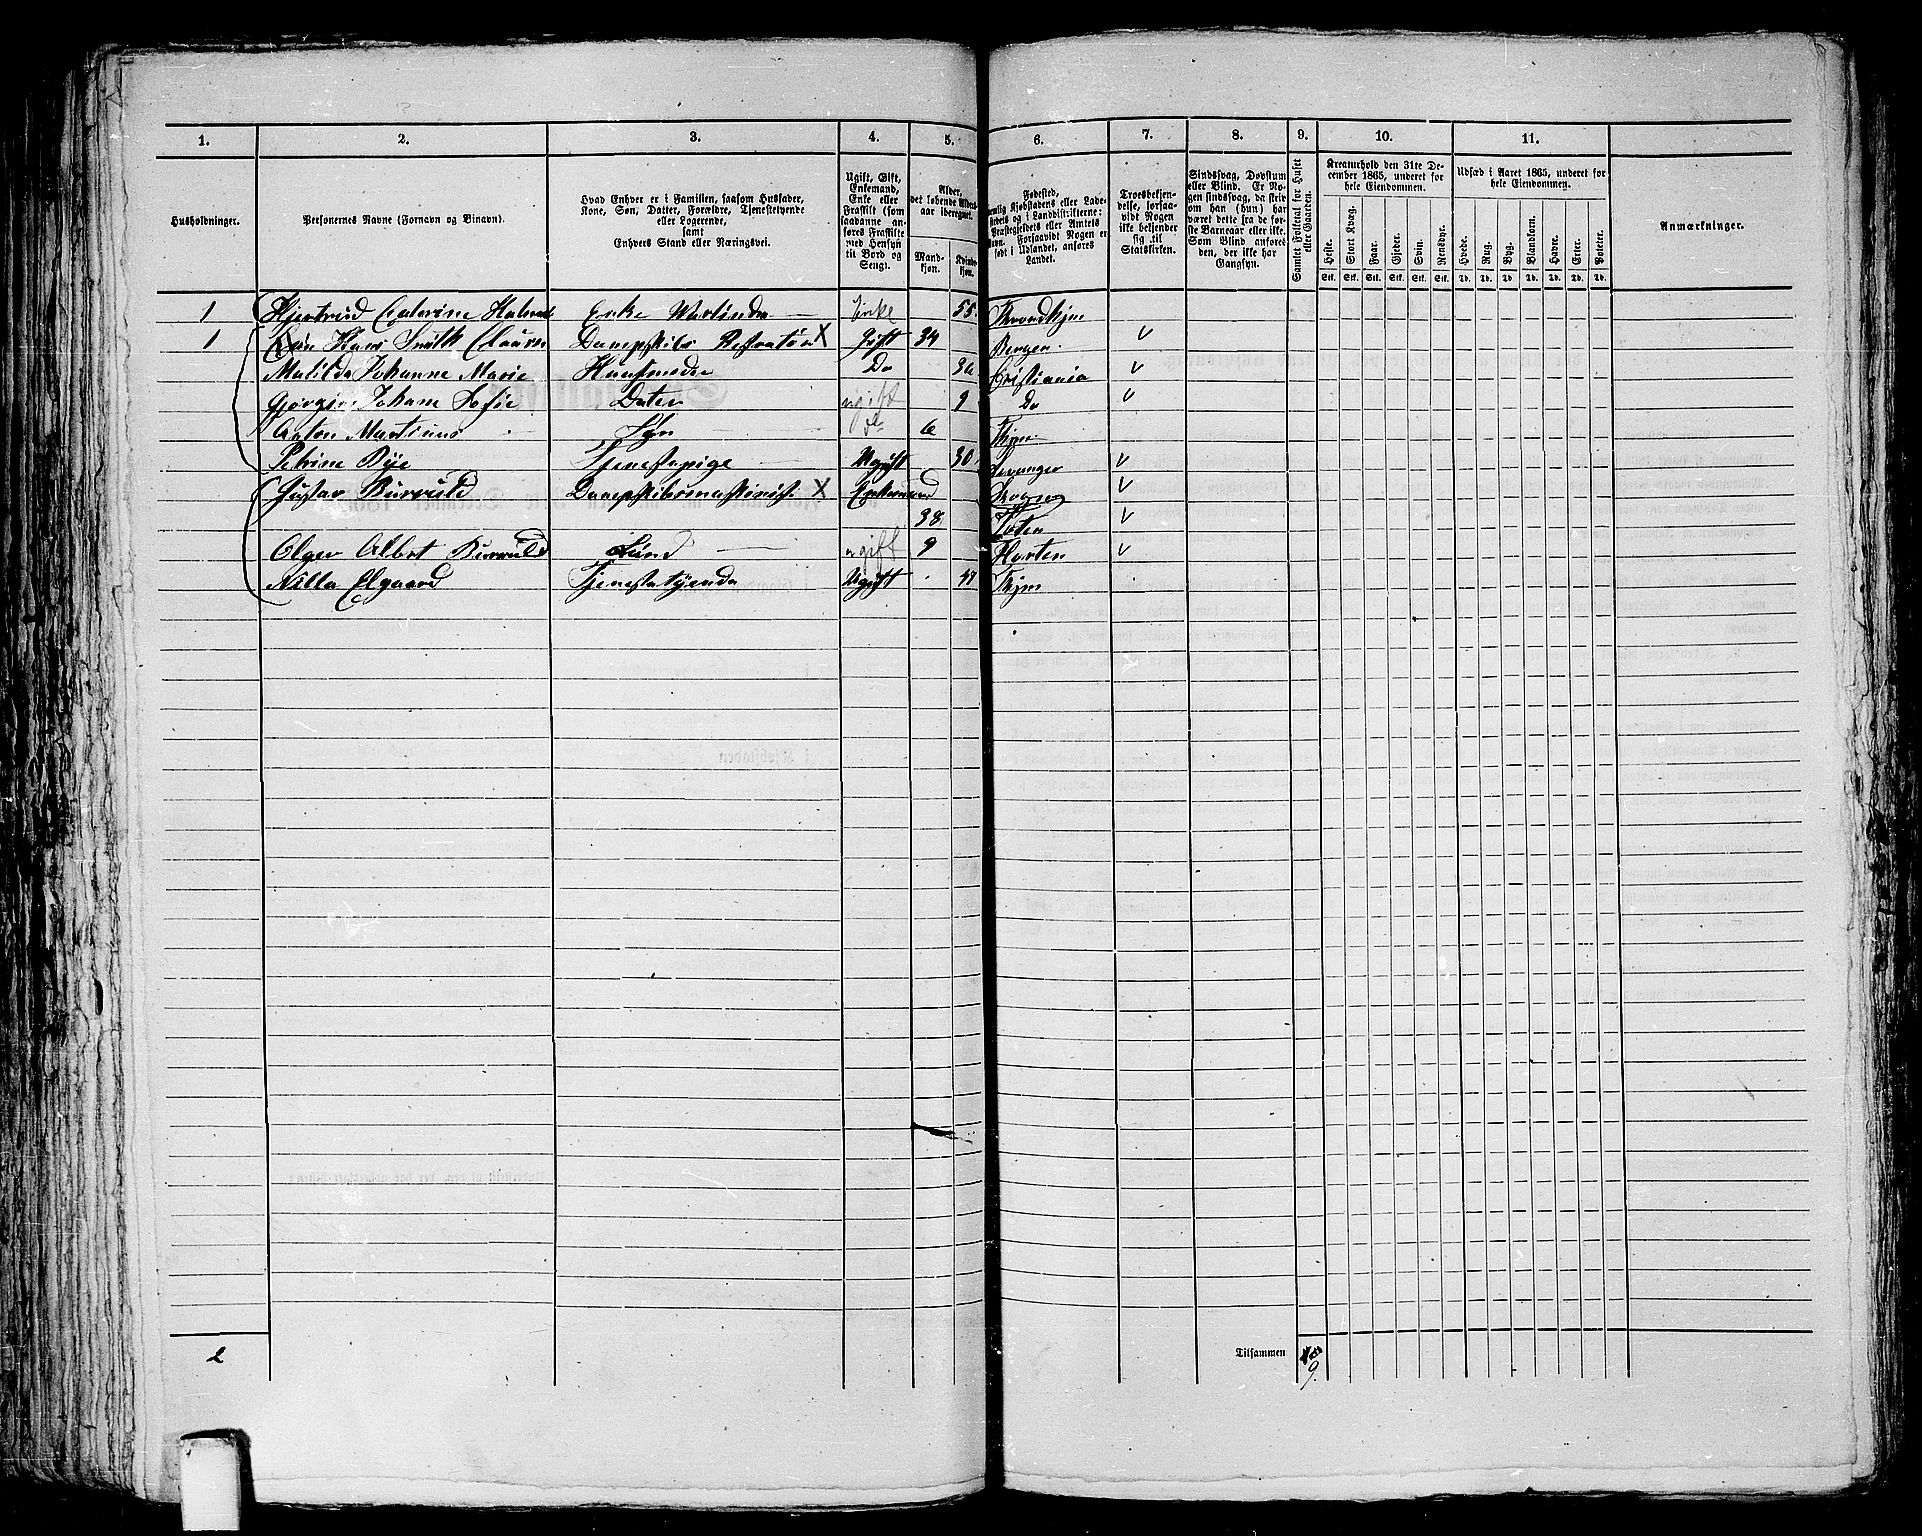 1. 2. 3. 4. 5. 6. 7. 8. 9. 10. 11.
Husholdninger.
Personernes Navne (Fornavn og Binavn).
Hvad Enhver er i Familien, saasom Husfader,
Kone, Søn, Datter, Forældre, Tjenestetyende
eller Logerende,
samt
Enhvers Stand eller Næringsvei.
Ugift, Gift,
Enkemand,
Enke eller
Fraskilt (som
saadanne an-
føres Fraskilte
med Hensyn
til Bord og
Seng).
Alder,
det løbende Alders-
aar iberegnet.
Mand-
kjøn.
Kvinde-
kjøn.
Fødested,
Kjøbstadens eller Lade-
stedets og i Landdistrikterne:
Præstegjeldets eller Amtets
Navn. Forsaavidt Nogen er
født i Udlandet, anføres
Landet.
Troesbekjen-
delse, forsaa-
vidt Nogen
ikke bekjender
sig til
Statskirken.
Sindssvag, Døvstum
eller Blind. Er No-
gen sindssvag, da skriv
om han (hun) har
været dette fra de før-
ste Barneaar eller ikke.
Som Blind anføres
den, der ikke har
Gangsyn.
Samlet Folketal for Huset
eller Gaarden.
Kreaturhold den 31te De-
cember 1865, underet for
hele Eiendommen.
Heste. Stort Kvæg. Faar. Gjeder. Svin. Rensdyr.
Stk. Stk. Stk. Stk. Stk. Stk.
Udsæd i Aaret 1865, underet for
hele Eiendommen.
Hvede. Rug. Byg. Blandkorn. Havre. Erter. Poteter.
Td. Td. Td. Td. Td. Td. Td.
Anmærkninger.
1 Catarine Enke Enke 55 Trondhjem
1 Hans Smith Dampskibs X Gift 34 Bergen
Matilda Johanne Marie Huusmoder Do Cristiania
Johane Sofie Dater ugift 9 Do
Anton Martinus Søn do 6 Thjem
Petrine Bye Tjenestepige Ugift 30 Levanger
Gustav X Enkemand
38 Toten
Albert ugift 9 Horten
Nilla Elgaard Tjenestetyende Ugift Thjem
2 Tilsammen 9